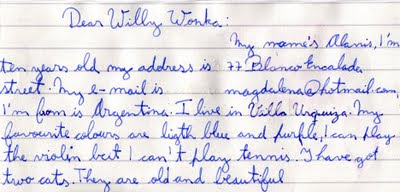 Dear Willy Wonka:
My name's Alanis, I'm
ten years old my address is 77 Blanco Encalada
street. My e-mail is magdalena@hotmail.com,
I'm from is Argentina. I live in Villa Urquiza. My
favourite colours are ligth blue and purple, I can play
the violin but I can't play tennis. I have got
two cats. They are old and beautiful